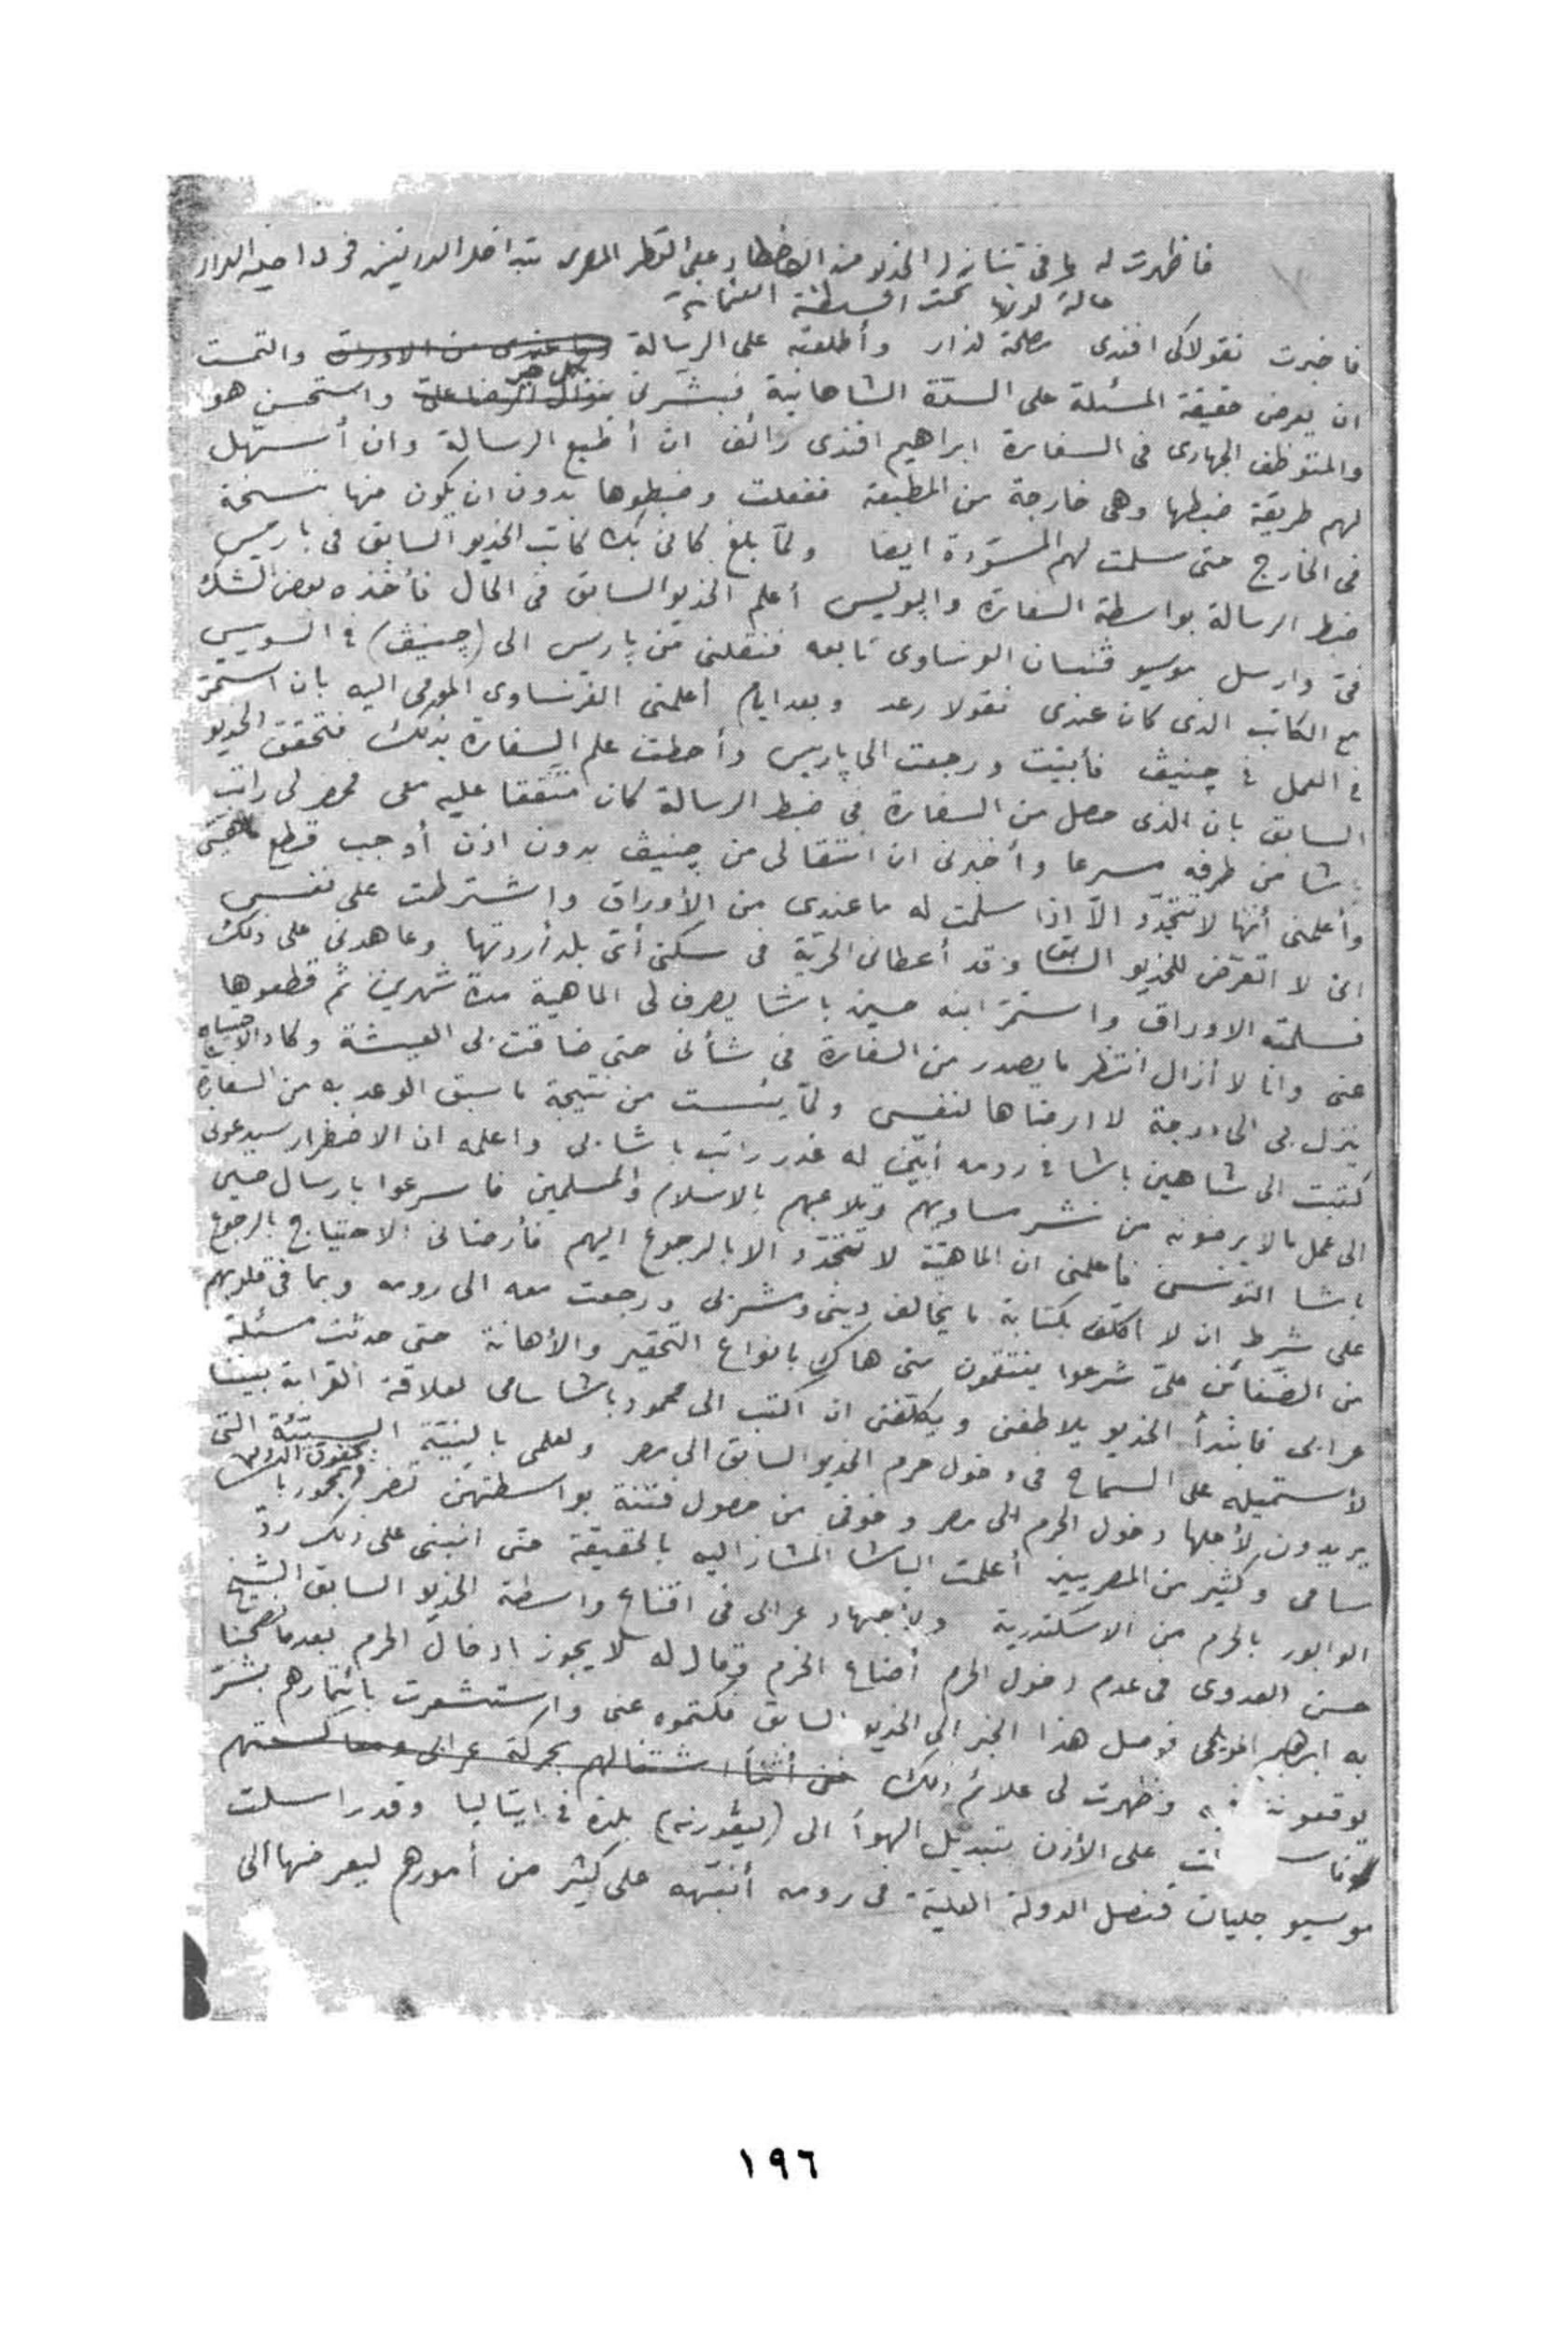 فاظهرت له ما فى تنازل الخديو من الاخطار على القطر المصرى بتداخل الدولتين فى داخلية
حالة كونها تحت السلطنة العثمانية
فاخبرت نقولاكى افندى مصلحة كذار وأطلعته على الرسالة وما عندى من الاوراق والتمست
ان يعرض حقيقة المسئلة على السدّة الشاهانية فبشّرنى بنوال الرضا علىّ واستحسن هو
والمتوظف الجهادى فى السفارة ابراهيم افندى رائف ان أطبع الرسالة وان أسهّل
لهم طريقة ضبطها وهى خارجة من المطبعة ففعلت وضبطوها بدون ان يكون منها نسخة
فى الخارج حتى سلمت لهم المسوّدة ايضا ولمّا بلغ كانى بك كاتب الخديو السابق فى باريس
ضبط الرسالة بواسطة السفارة والپوليس أعلم الخديو السابق فى الحال فأخذه بعض الشك
فىّ وارسل موسيو ڤنسان الفرنساوى تابعه فنقلنى من پاريس الى (چنيڤ) فى السويس
مع الكاتب الذى كان عندى نقولا رعد وبعد ايام أعلمنى الفرنساوى المومى اليه بان استمرّ
فى العمل فى چنيڤ فأبيت ورجعت الى پاريس وأحطت علم السفارة بذلك فتحقق الخديو
السابق بان الذى حصل من السفارة فى ضبط الرسالة كان متفقا عليه معى فحضر لى راتب
باشا من طرفه مسرعا وأخبرنى ان انتقالى من چنيڤ بدون اذن أوجب قطع ماهيتى
وأعلمنى أنها لا تتجدّد الّا اذا سلمت له ما عندى من الأوراق واشترطت على نفسى
انى لا اتعرّض للخديو السابق وقد أعطانى الحرّية فى سكنى أىّ بلد أردتها وعاهدنى على ذلك
فسلمته الاوراق واستمرّ ابنه حسين باشا يصرف لى الماهية مدّة شهرين ثم قطعوها
عنى وانا لا أزال انتظر ما يصدر من السفارة فى شأنى حتى ضاقت بى العيشة وكاد الاحتياج
ينزل بى الى درجة لا ارضاها لنفسى ولمّا يئست من نتيجة ما سبق الوعد به من السفارة
كتبت الى شاهين باشا فى رومه أبيّن له غدر راتب باشا بى واعلمه ان الاضطرار سيدعونى
الى عمل ما لا يرضونه من نشر مساويهم وتلاعبهم بالاسلام والمسلمين فاسرعوا بارسال حسين
باشا التونسى فاعلمنى ان الماهيّة لا تتجدّد الا بالرجوع اليهم فأرضانى الاحتياج بالرجوع
على شرط ان لا اكلّف بكتابة ما يخالف دينى ومشربى ورجعت معه الى رومه وبما فى قلوبهم
من الضغائن علىّ شرعوا ينتقمون منى هناك بانواع التحقير والأهانة حتى حدثت مسئلة
عرابى فابتدأ الخديو يلاطفنى ويكلّفنى ان اكتب الى محمود باشا سامى لعلاقة القرابة بيننا
لأستميله على السماح فى دخول حرم الخديو السابق الى مصر ولعلمى بالنيّة السيّئة التى
يريدون لأجلها دخول الحرم الى مصر وخوفى من حصول فتنة بواسطتهنّ تضر بحقوق الدولة وبمحمود باشا
سامى وكثير من المصريين أعلمت الباشا المشار اليه بالحقيقة حتى انبنى على ذلك ردّ
الوابور بالحرم من الاسكندرية ولاجتهاد عرابى فى اقناع واسطة الخديو السابق الشيخ
حسن العدوى فى عدم دخول الحرم أضاع الحزم وقال له لا يجوز ادخال الحرم بعدما نصحنا
به ابرهيم المويلحى فوصل هذا الخبر الى الخديو السابق فكتموه عنى واستشعرت بائتمارهم بشرّ
يوقعوننى فيه وظهرت لى علائم ذلك فى أثناء اشتغالهم بحركة عرابى ومعاكستهم
على الأذن بتبديل الهوآ الى (ليڤورنه) بلدة فى ايتاليا وقد راسلت
موسيو جليان قنصل الدولة العليّة فى رومه أنبّهه على كثير من أمورهم ليعرضها الى
١٩٦